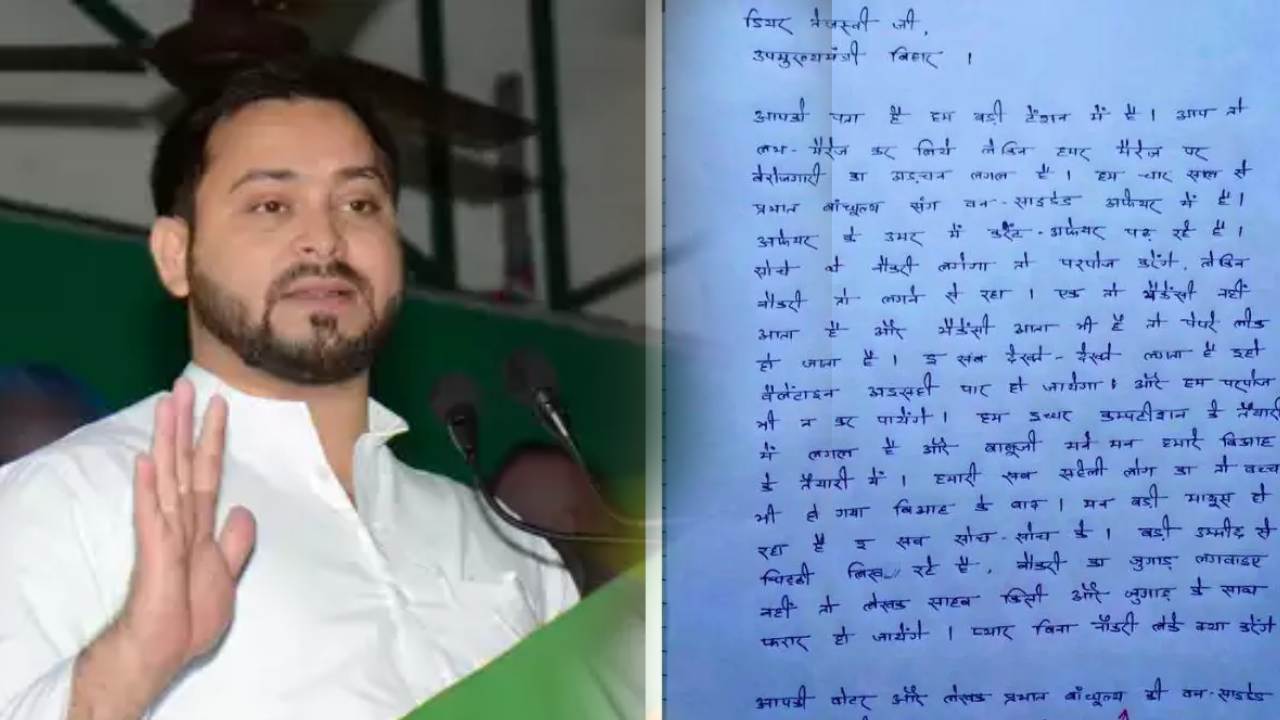 डियर तेजस्वी जी,
उपमुख्यमंत्री बिहार ।
आपको पता है हम बड़ी टेंशन में है। आप तो
लभ-मैरेज कर लिये लेकिन हमर मैरेज पर
बेरोजगारी का अड़चन लगल है। हम चार साल से
प्रभात बाँधूल्य संग वन-साइडेड अफेयर में है।
अफेयर के उमर में करेंट-अफेयर पढ़ रहे है।
सोचे थे नौकरी लगेगा तो परपोज करेंगे, लेकिन
नौकरी तो लगने से रहा । एक तो भैकेंसी नहीं
आता है और भैकेंसी आता भी है तो पेपरे लीक
हो जाता है। इ सब देखते-देखते लगता है इहो
वैलेंटाइन अइसही पार हो जायेगा। और हम परपोज
भी न कर पायेंगे। हम इधर कम्पटीशन के तैयारी
में लगल है और बाबूजी मने मन हमारे बिआह
के तैयारी में । हमारी सब सहेली लोग का तो बच्चा
भी हो गया बिआह के बाद । मन बड़ी मायूस हो
रहा है इ सब सोच-सोच के । बड़ी उम्मीद से
चिट्ठी लिख रहे है, नौकरी का जुगाड़ लगवाइए
नहीं तो लेखक साहब किसी और जुगाड़ के साथ
फरार हो जायेंगे । प्यार बिना नौकरी लेके क्या करेंगे
आपकी वोटर और लेखक प्रभात बाँधूल्य की वन-साइडेड